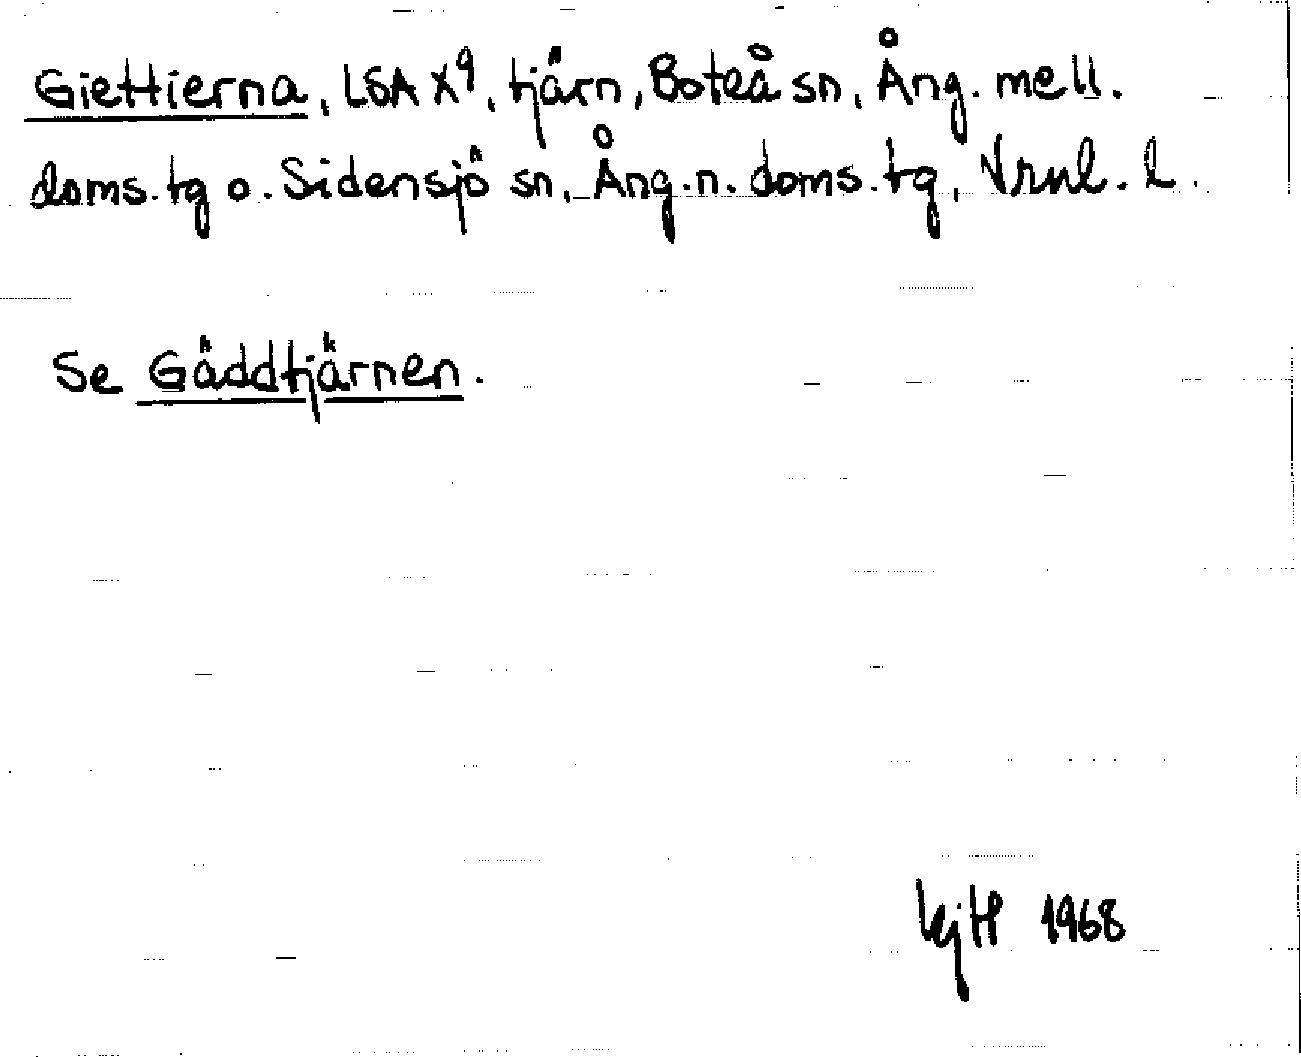 Giettierna, LSA X9, tjärn, Boteå sn, Ång. mell.
doms.tg o. Sidensjö sn, Ång.n. doms.tg, Vrnl. l.
Se Gäddtjärnen.
1968